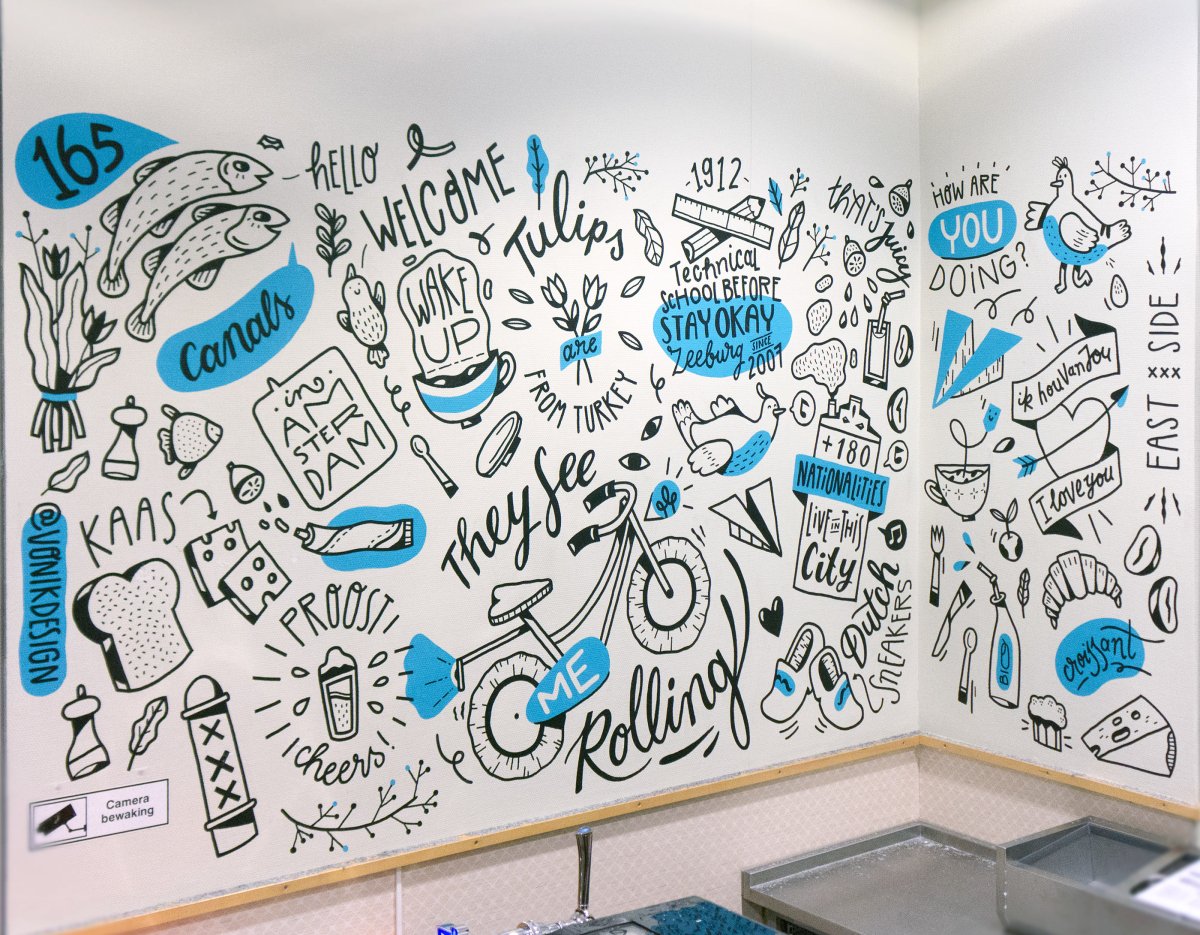 165
HELLO
WELCOME
canals
WAKE
UP
Tulips
are
FROM TURKEY
1912
Technical
SCHOOL BEFORE
STAY OKAY
Zeeburg SINCE
2007
THAT'S
Juicy
HOW ARE
YOU
DOING?
in
AM
STER
DAM
KAAS
@VANIKDESIGN
They See
ME
Rolling
PROOST!
cheers!
+180
NATIONALITIES
LIVE IN THIS
City
Dutch
SNEAKERS
ik hou van jou
I love you
EAST SIDE
xxx
BIO
croissant
XXX
Camera
bewaking